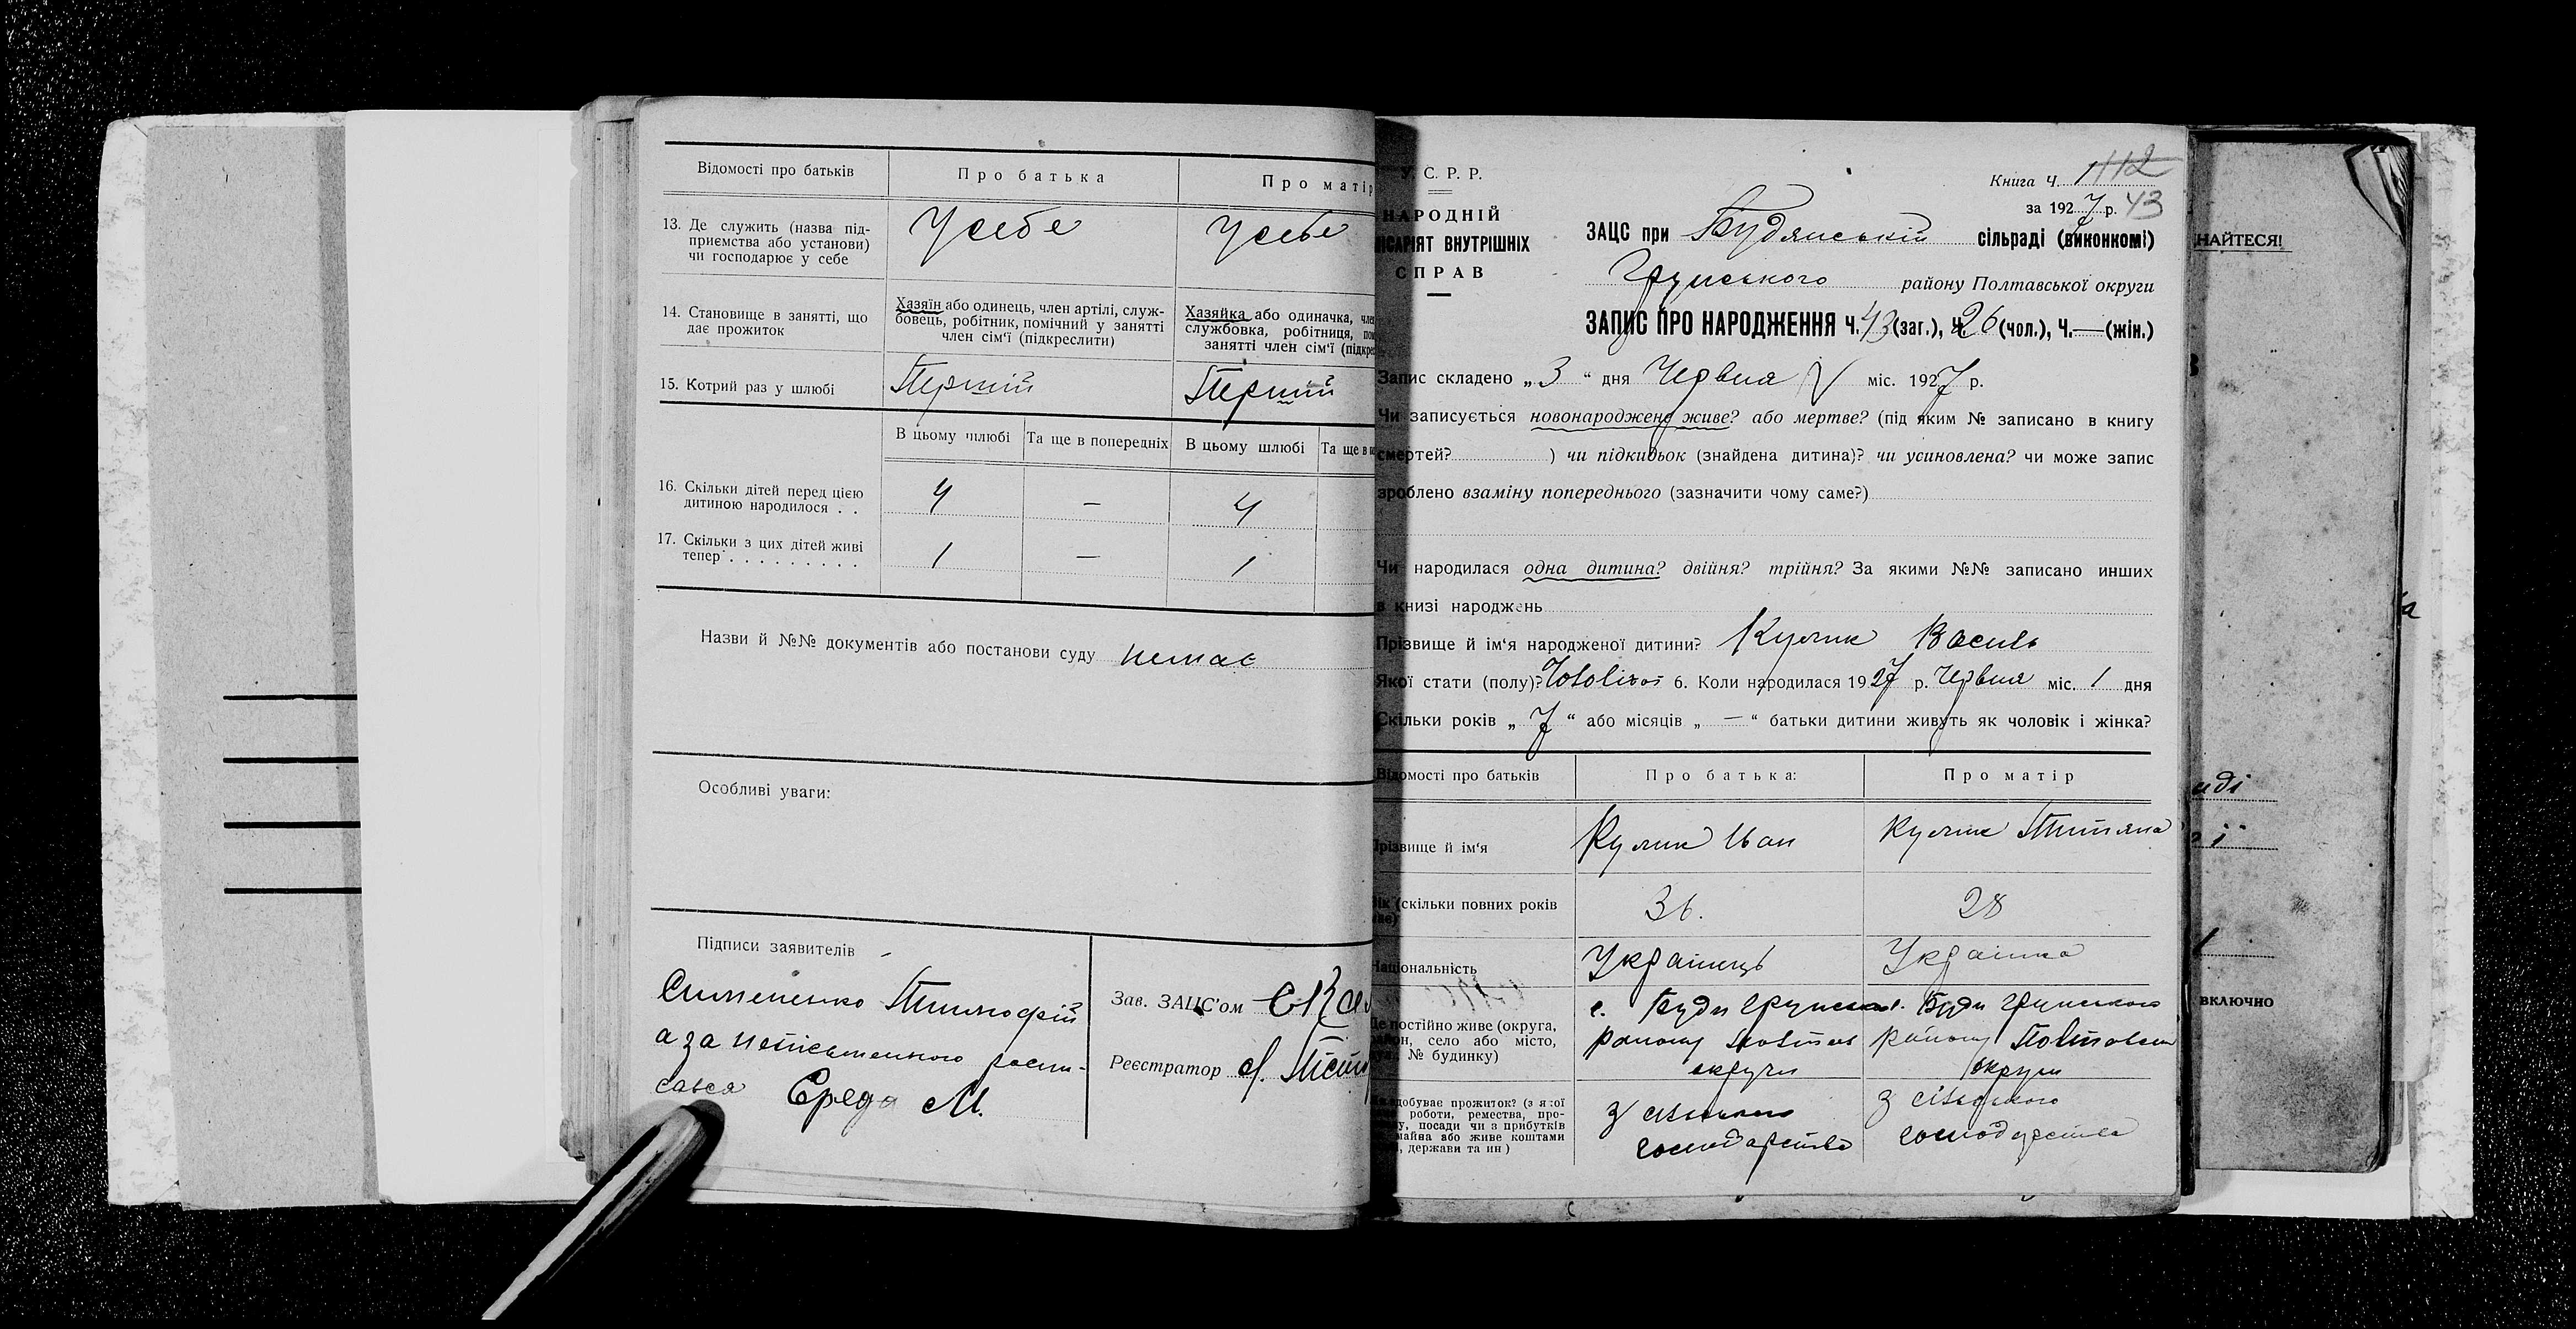 Відомості про батьків
Про батька
Про матір
13. Де служить (назва під-
приємства або установи)
чи господарює у себе
У себе
У себе
14. Становище в занятті, що
дає прожиток
Хазяїн або одинець, член артілі, служ-
бовець, робітник, помічний у занятті
член сім'ї (підкреслити)
Хазяйка або одиначка, член
службовка, робітниця,
занятті член сім'ї
15. Котрий раз у шлюбі
Перший
Перший
В цьому шлюбі
Та ще в попередніх
В цьому шлюбі
Та ще в
16. Скільки дітей перед цією
дитиною народилося . .
4
—
4
17. Скільки з цих дітей живі
тепер . . . . . . . . .
1
—
1
Назви й №№ документів або постанови суду немає
Особливі уваги:
Підписи заявителів
Симоненко Тимофій
а за неписьменного роспи-
сався Середа М.
Зав. ЗАЦС'ом
Реєстратор
У. С. Р. Р.
НАРОДНІЙ
ВНУТРІШНІХ
СПРАВ
Книга Ч. 1112
за 1927 р. 43
ЗАЦС при Будянській сільраді (виконкомі)
Грунського району Полтавської округи
ЗАПИС ПРО НАРОДЖЕННЯ Ч. 43 (заг.), Ч. 26 (чол.), Ч. — (жін.)
Запис складено „ 3 “ дня Червня міс. 1927 р.
Чи записується новонароджене живе? або мертве? (під яким № записано в книгу
смертей? ) чи підкидьок (знайдена дитина)? чи усиновлена? чи може запис
зроблено взаміну попереднього (зазначити чому саме?)
Чи народилася одна дитина? двійня? трійня? За якими №№ записано инших
в книзі народжень
Прізвище й ім'я народженої дитини? Кулик Василь
Якої стати (полу)? Чоловічої 6. Коли народилася 1927 р. Червня міс. 1 дня
Скільки років „ 7 “ або місяців „ — “ батьки дитини живуть як чоловік і жінка?
Відомості про батьків
Про батька:
Про матір
Прізвище й ім'я
Кулик Іван
Кулик Титяна
Вік (скільки повних років
36.
28
Національність
Українець
Українка
Де постійно живе (округа,
район, село або місто,
№ будинку)
с. Буди Грунсько
району Полтавс
округи
с. Буди Грунського
району Полтавськ
округи
добуває прожиток? (з якої
роботи, ремества, про-
посади чи з прибутків
майна або живе коштами
держави та ин)
З сільського
господарства
З сільського
господарства
НАЙТЕСЯ!
ді
ї
включно